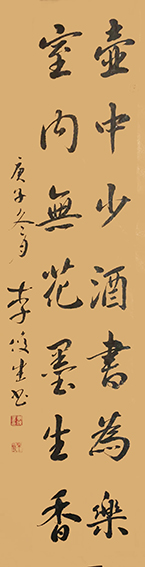 壺中少酒書為樂
室内無花墨生香
庚子冬月
李俊生書